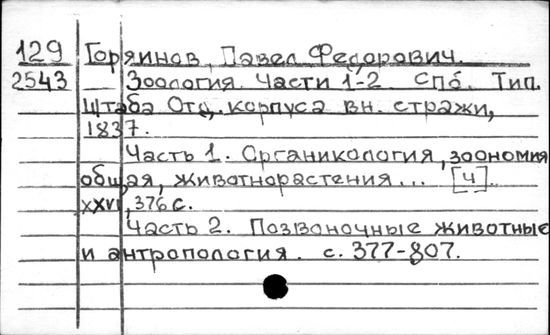 129 Горяинов, Павел Федорович.
2543 Зоология. Части 1-2. СПб. Тип.
Штаба Отд. корпуса вн. стражи,
1837.
Часть 1. Органикология, зоономия
общая, животнорастения... [4],
XXVI, 376 с.
Часть 2. Позвоночные животные
и антропология. с. 377-807.